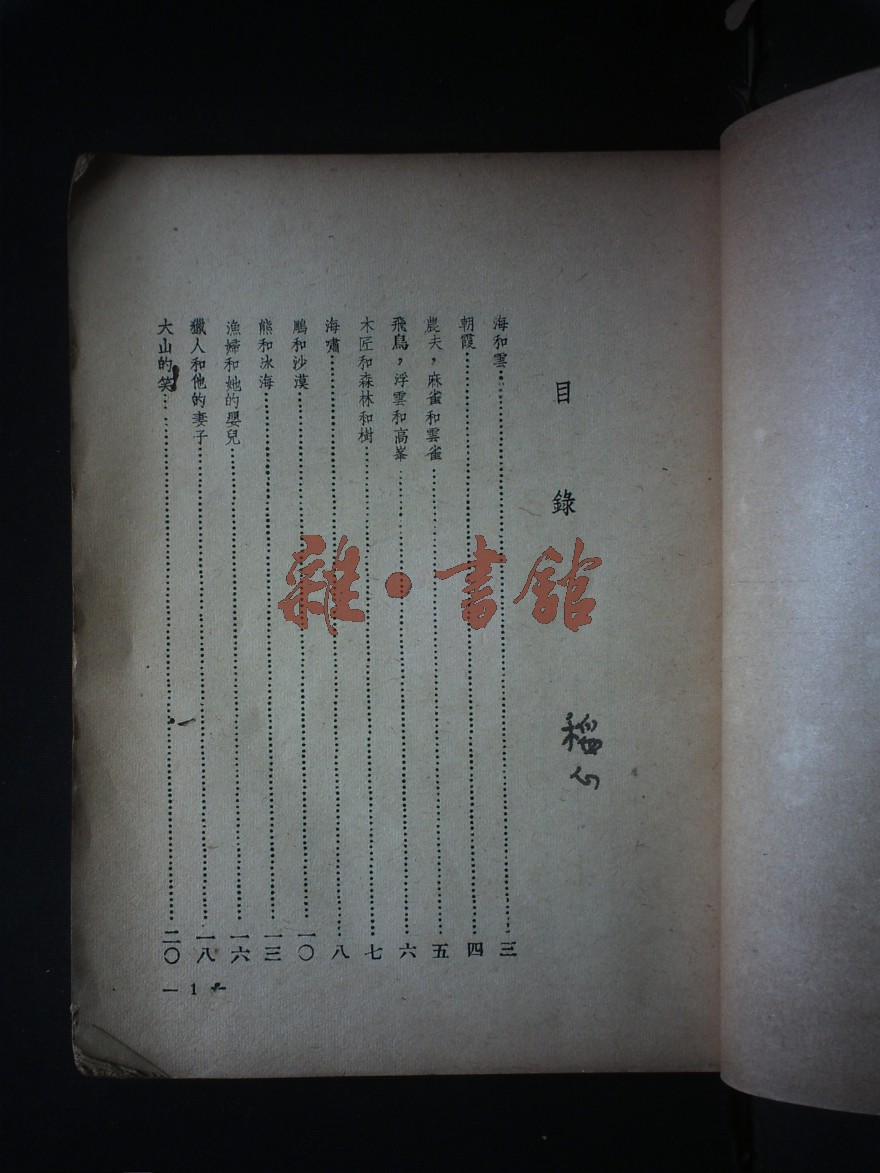 目錄
海和雲⋯⋯三
朝霞⋯⋯四
農夫，麻雀和雲雀⋯⋯五
飛鳥，浮雲和高峯⋯⋯六
木匠和森林和樹⋯⋯七
海嘯⋯⋯八
鵰和沙漠⋯⋯一〇
熊和冰海⋯⋯一三
漁婦和她的嬰兒⋯⋯一六
獵人和他的妻子⋯⋯一八
大山的笑⋯⋯二〇
— 1 —
雜·書館